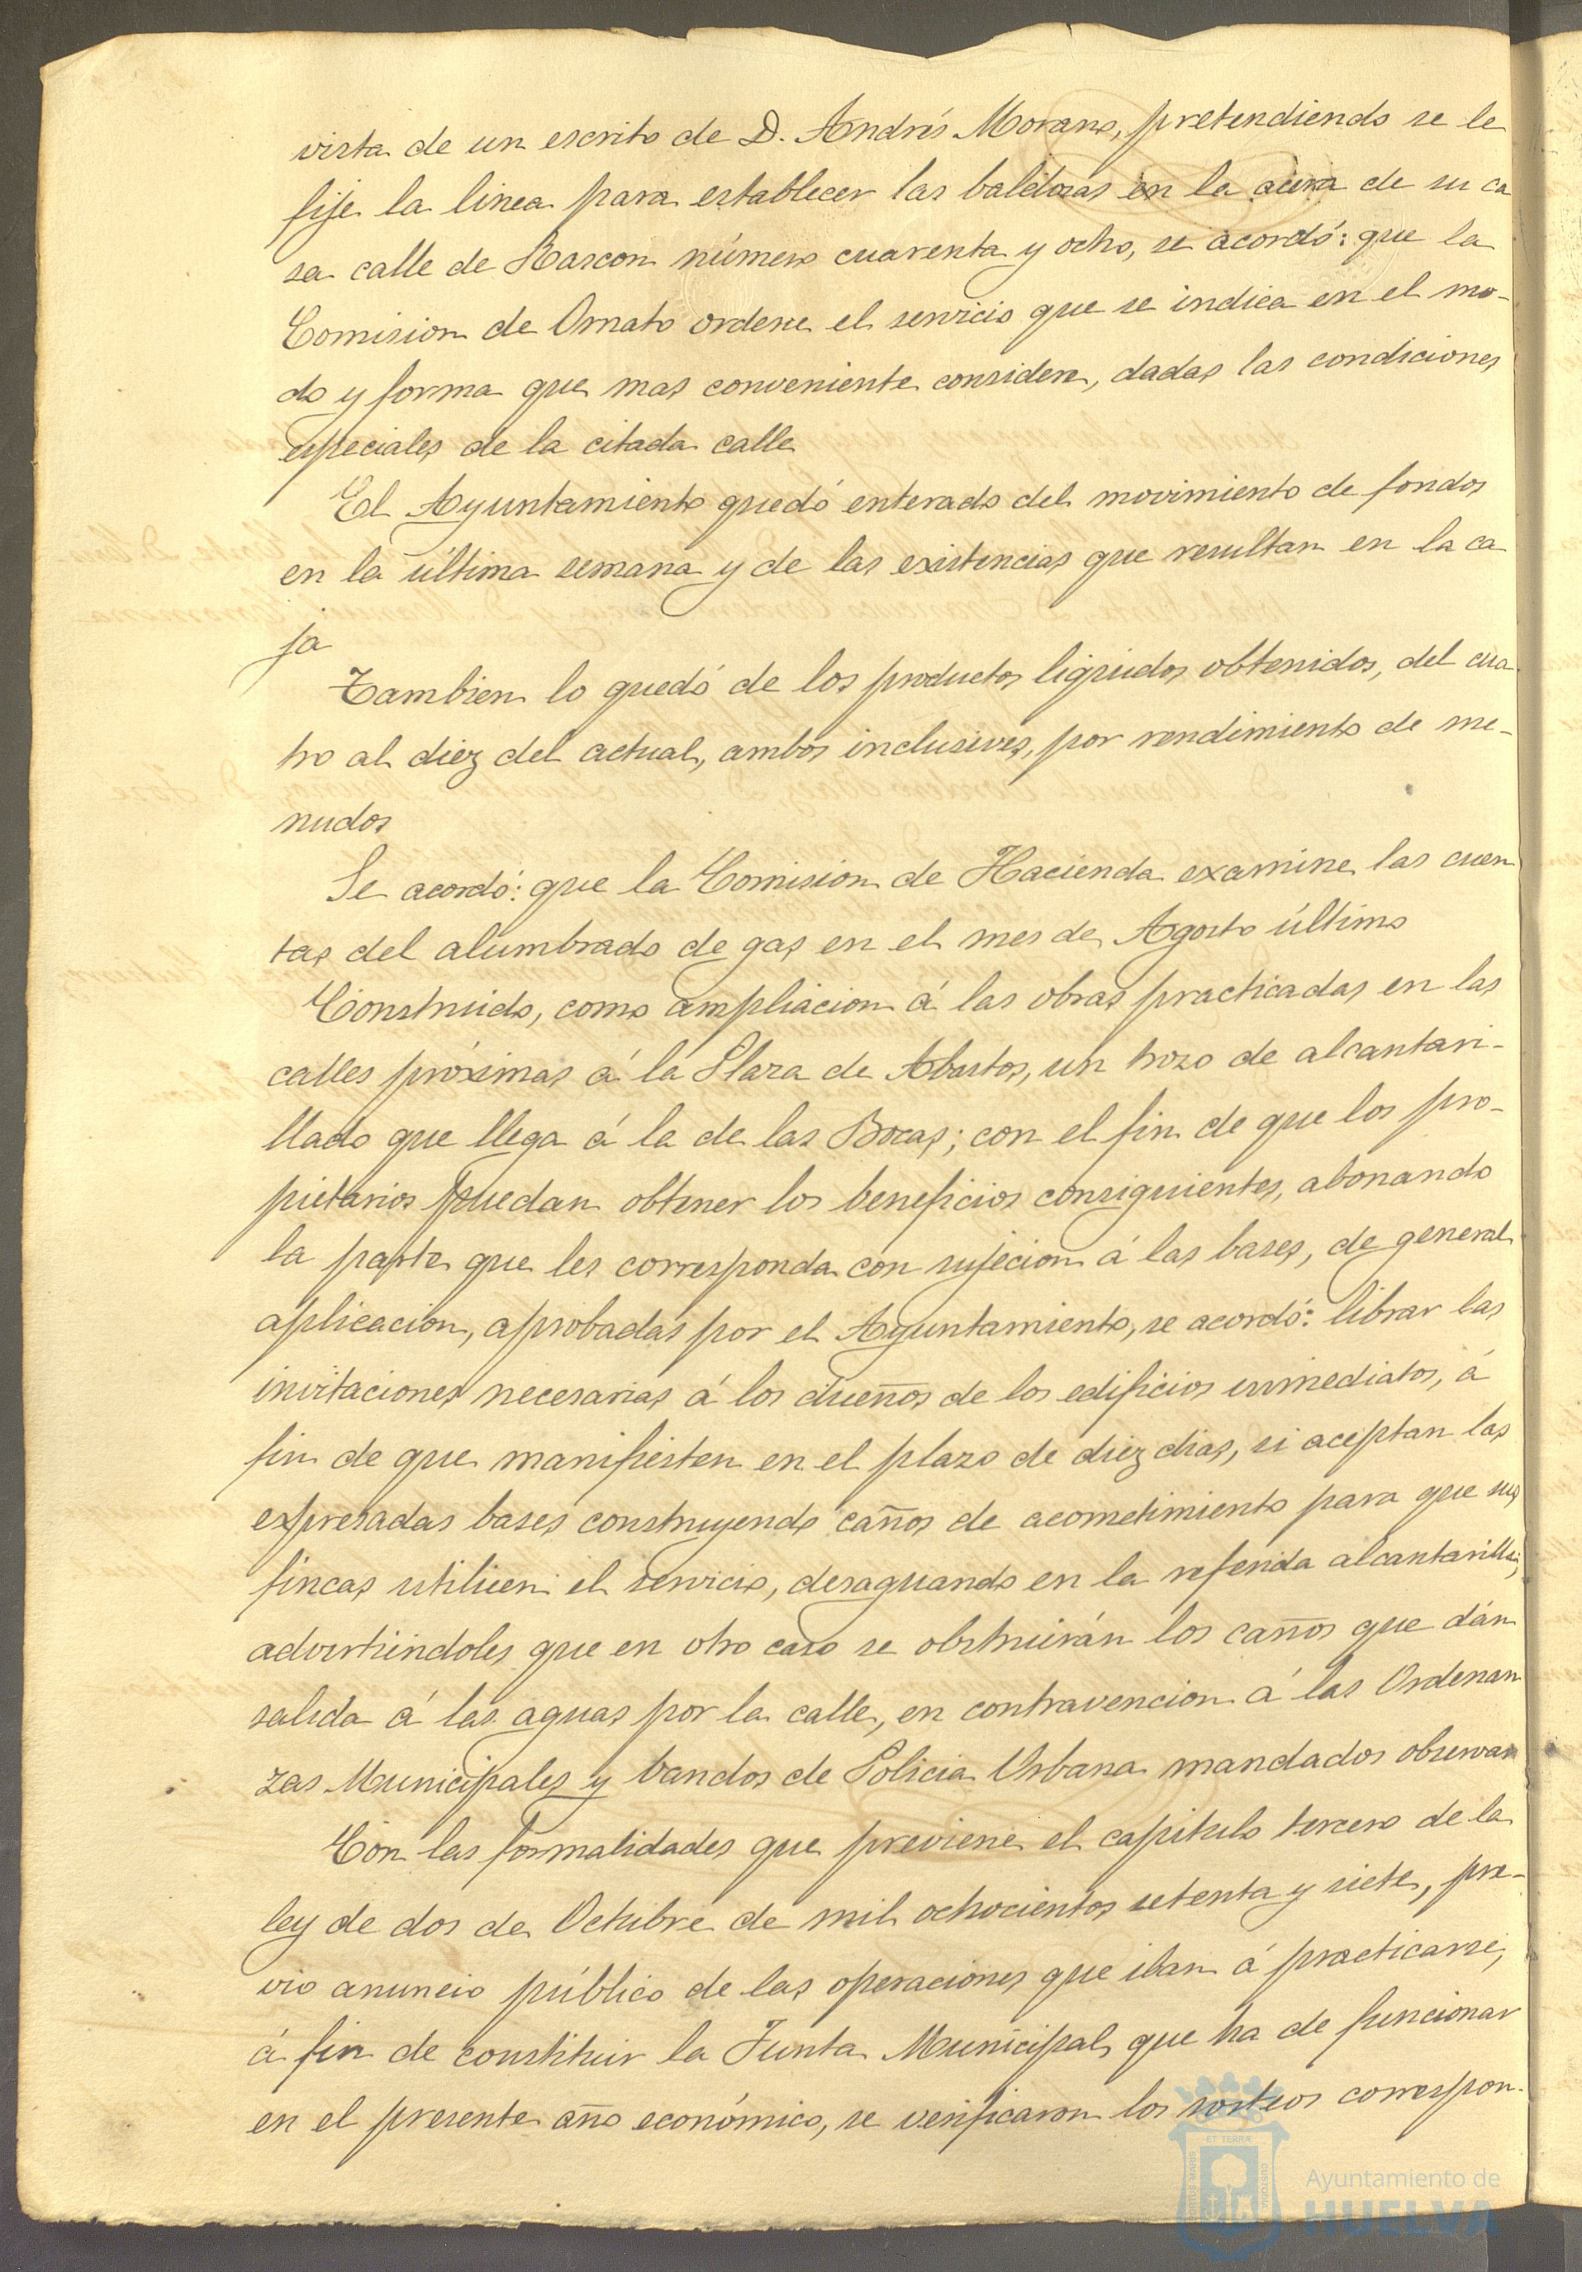 vista de un escrito de D. Andrés Morano, pretendiendo se le
fije la linea para establecer las baldosas en la acera de su ca
sa calle de Rascon número cuarenta y ocho, se acordó: que la
Comision de Ornato ordene el servicio que se indica en el mo-
do y forma que mas conveniente considere, dadas las condiciones
especiales de la citada calle
El Ayuntamiento quedó enterado del movimiento de fondos
en la última semana y de las existencias que resultan en la ca
ja
Tambien lo quedó de los productos liquidos obtenidos, del cua
tro al diez del actual, ambos inclusives, por rendimiento de me-
nudos
Se acordó: que la Comision de Hacienda examine las cuen
tas del alumbrado de gas en el mes de Agosto último
Construido, como ampliacion á las obras practicadas en las
calles próximas á la Plaza de Abastos, un trozo de alcantari-
llado que llega á la de las Bocas; con el fin de que los pro-
pietarios puedan obtener los beneficios consiguientes, abonando
la parte que les corresponda con sujecion á las bases, de general
aplicacion, aprobadas por el Ayuntamiento, se acordó: librar las
invitaciones necesarias á los dueños de los edificios inmediatos, á
fin de que manifiesten en el plazo de diez dias, si aceptan las
expresadas bases construyendo caños de acometimiento para que sus
fincas utilicen el servicio, desaguando en la referida alcantarilla;
advirtiéndoles que en otro caso se obstruirán los caños que dán
salida á las aguas por la calle, en contravencion á las Ordenan
zas Municipales y bandos de Policia Urbana mandados observar
Con las formalidades que previene el capitulo tercero de la
ley de dos de Octubre de mil ochocientos setenta y siete, pre-
vio anuncio público de las operaciones que iban á practicarse,
á fin de constituir la Junta Municipal que ha de funcionar
en el presente año económico, se verificaron los sorteos correspon-
Ayuntamiento de
HUELVA